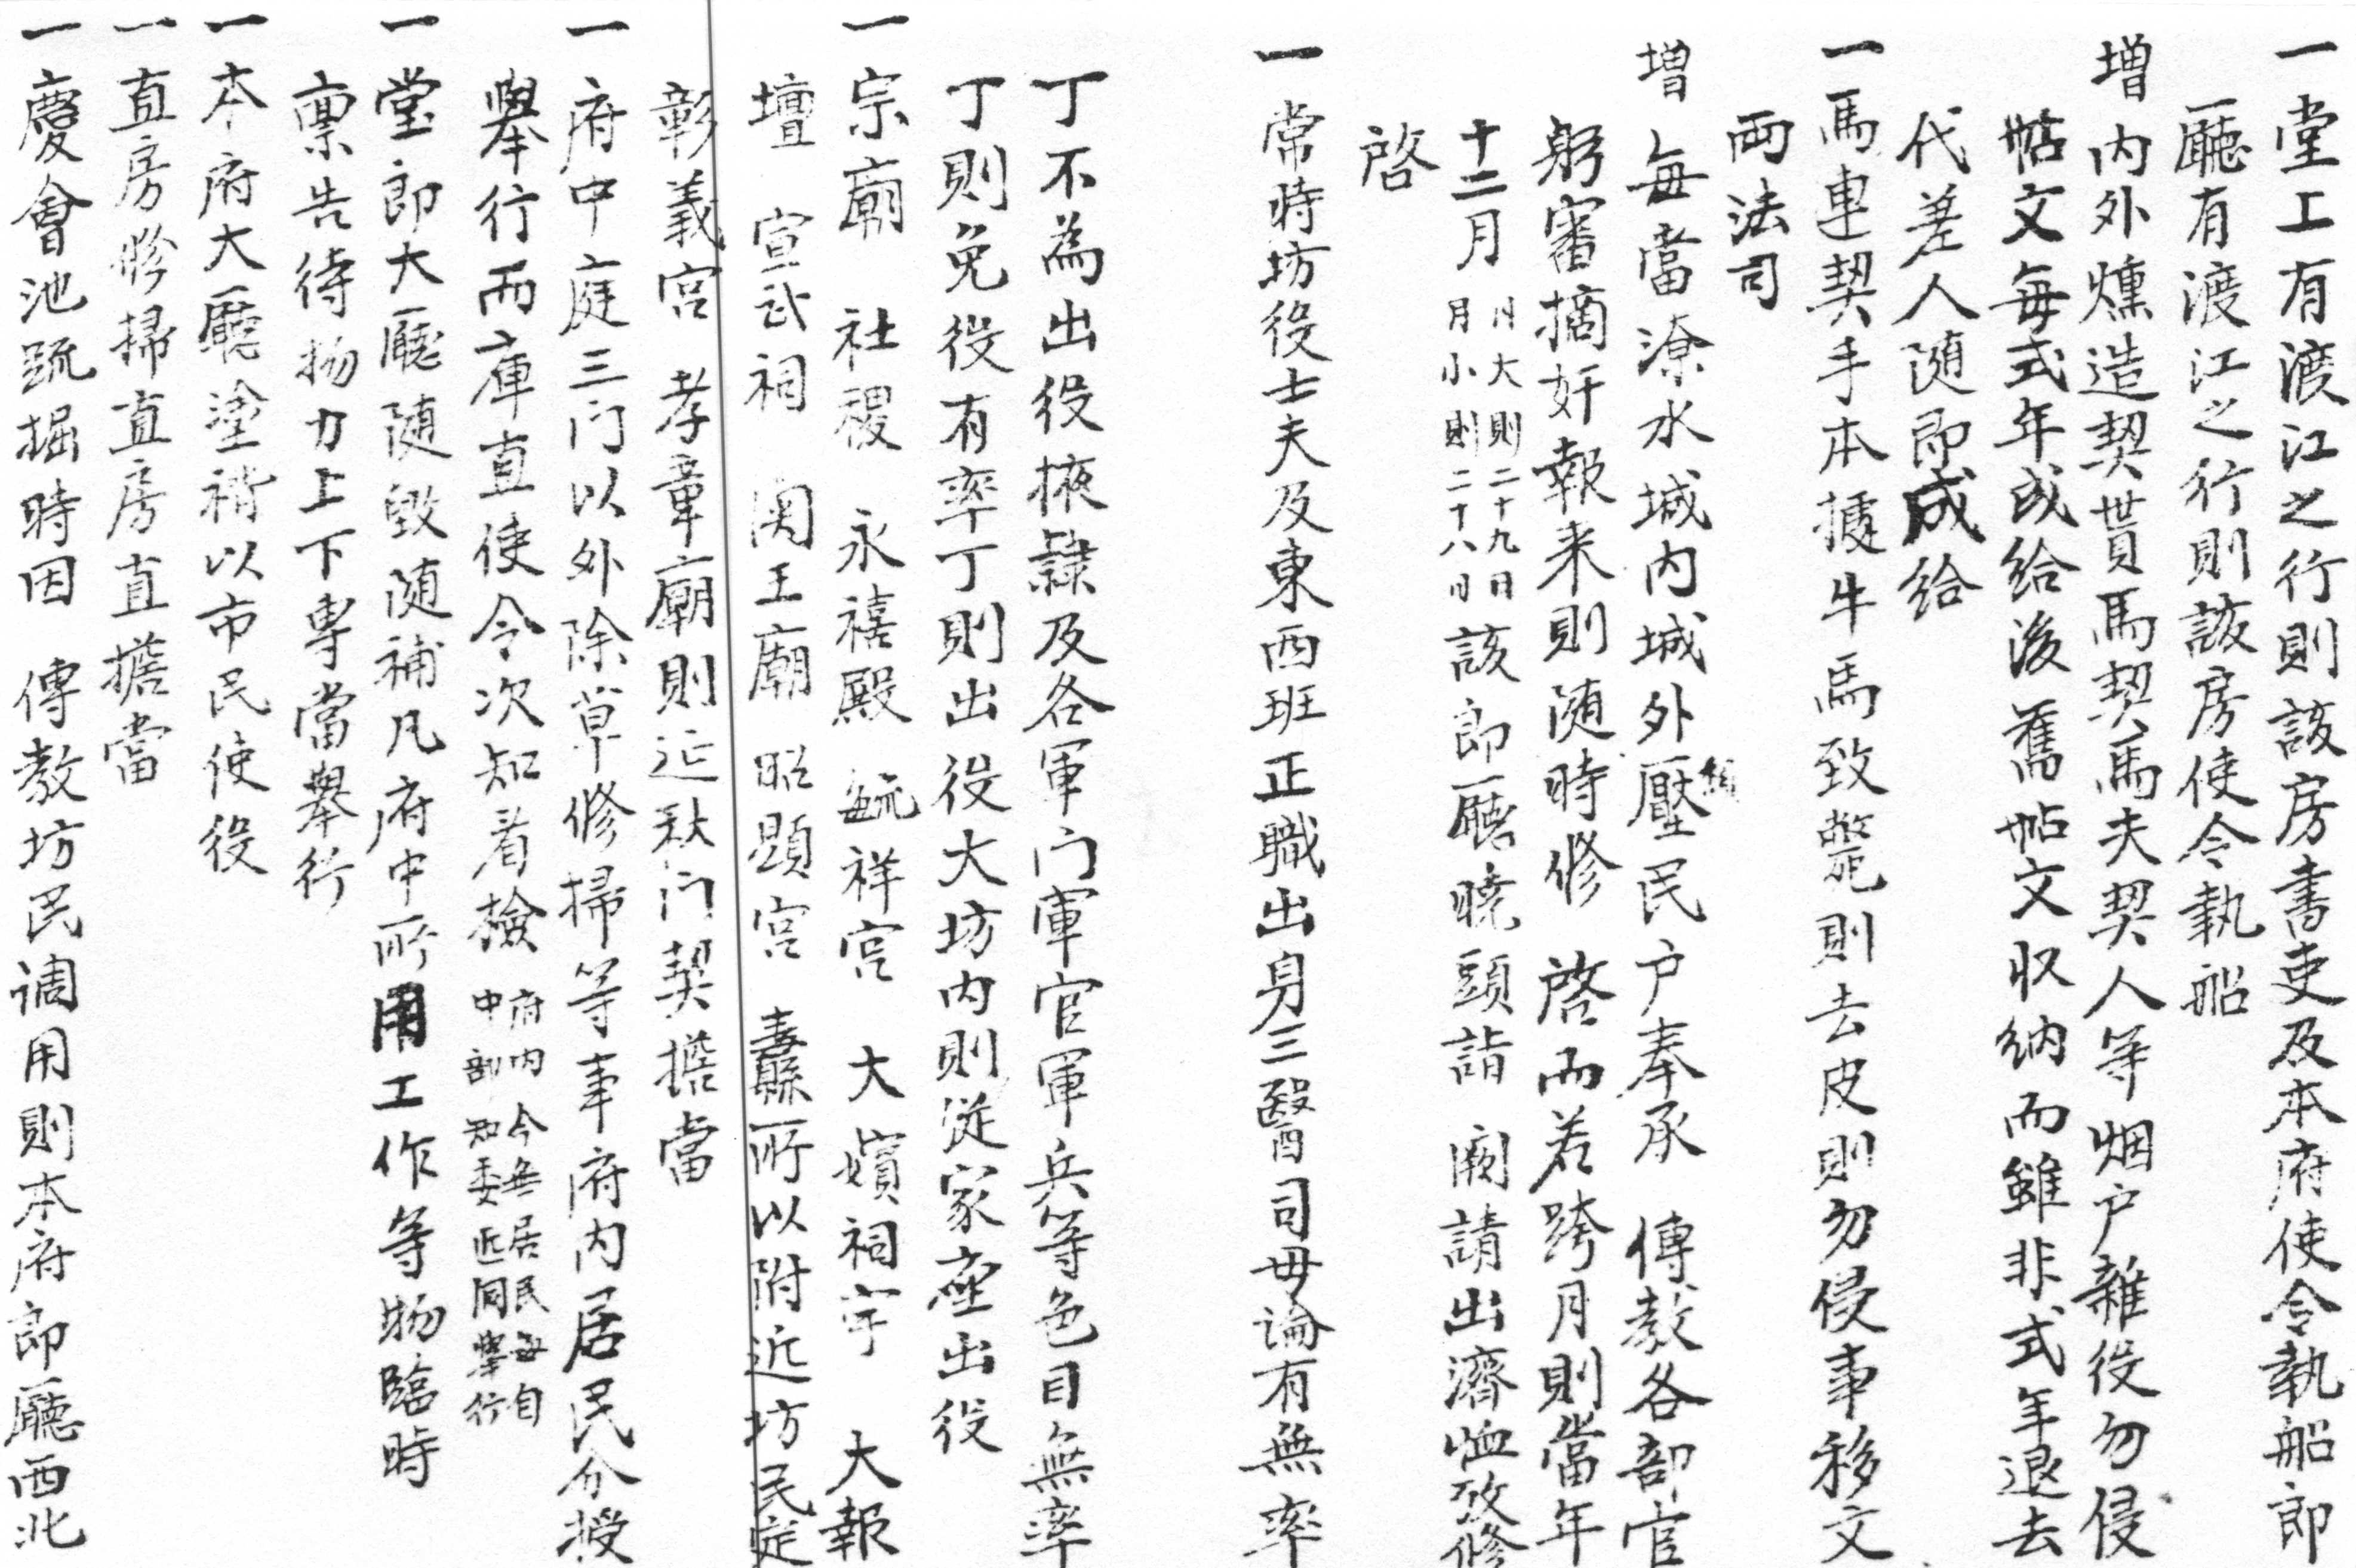 一堂上有渡江之行則該房書吏及本府使令執船郎
廳有渡江之行則該房使令執船
增內外燻造契貰馬契馬夫契人等烟户雜役勿侵
帖文每式年成給後舊帖文収納而雖非式年退去
代差人随即成給
一馬連契手本據牛馬致斃則去皮則勿侵事移文
両法司
增每當潦水城内城外壓民户奉承 傳教各部官
躬審摘奸報来則随時修 啓而若跨月則當年
十二月 月大則二十九日 月小則二十八日 該郎廳曉頭詣 闕請出濟恤攷修
啓
一常時坊役士夫及東西班正職出身三醫司毋論有無率
丁不為出役掖隸及各軍门軍官軍兵等色目無率
丁則免役有率丁則出役大坊内則従家座出役
一宗廟 社稷 永禧殿 毓祥宮 大嬪祠宇 大報
壇 宣武祠 関王廟 昭顕宮 纛所以附近坊民定
彰義宮 孝章廟則延秋门契擔當
一府中庭三门以外除草修掃等事府内居民分授
舉行而庫直使令次知着檢 府内今無居民每自 中部知委近洞舉行
一堂郎大廳随毀随補凡府中所用工作等物臨時
稟告待物力上下専當舉行
一本府大廳塗褙以市民使役
一直房修掃直房直擔當
一慶會池疏掘時因 傳教坊民调用則本府郎廳西北